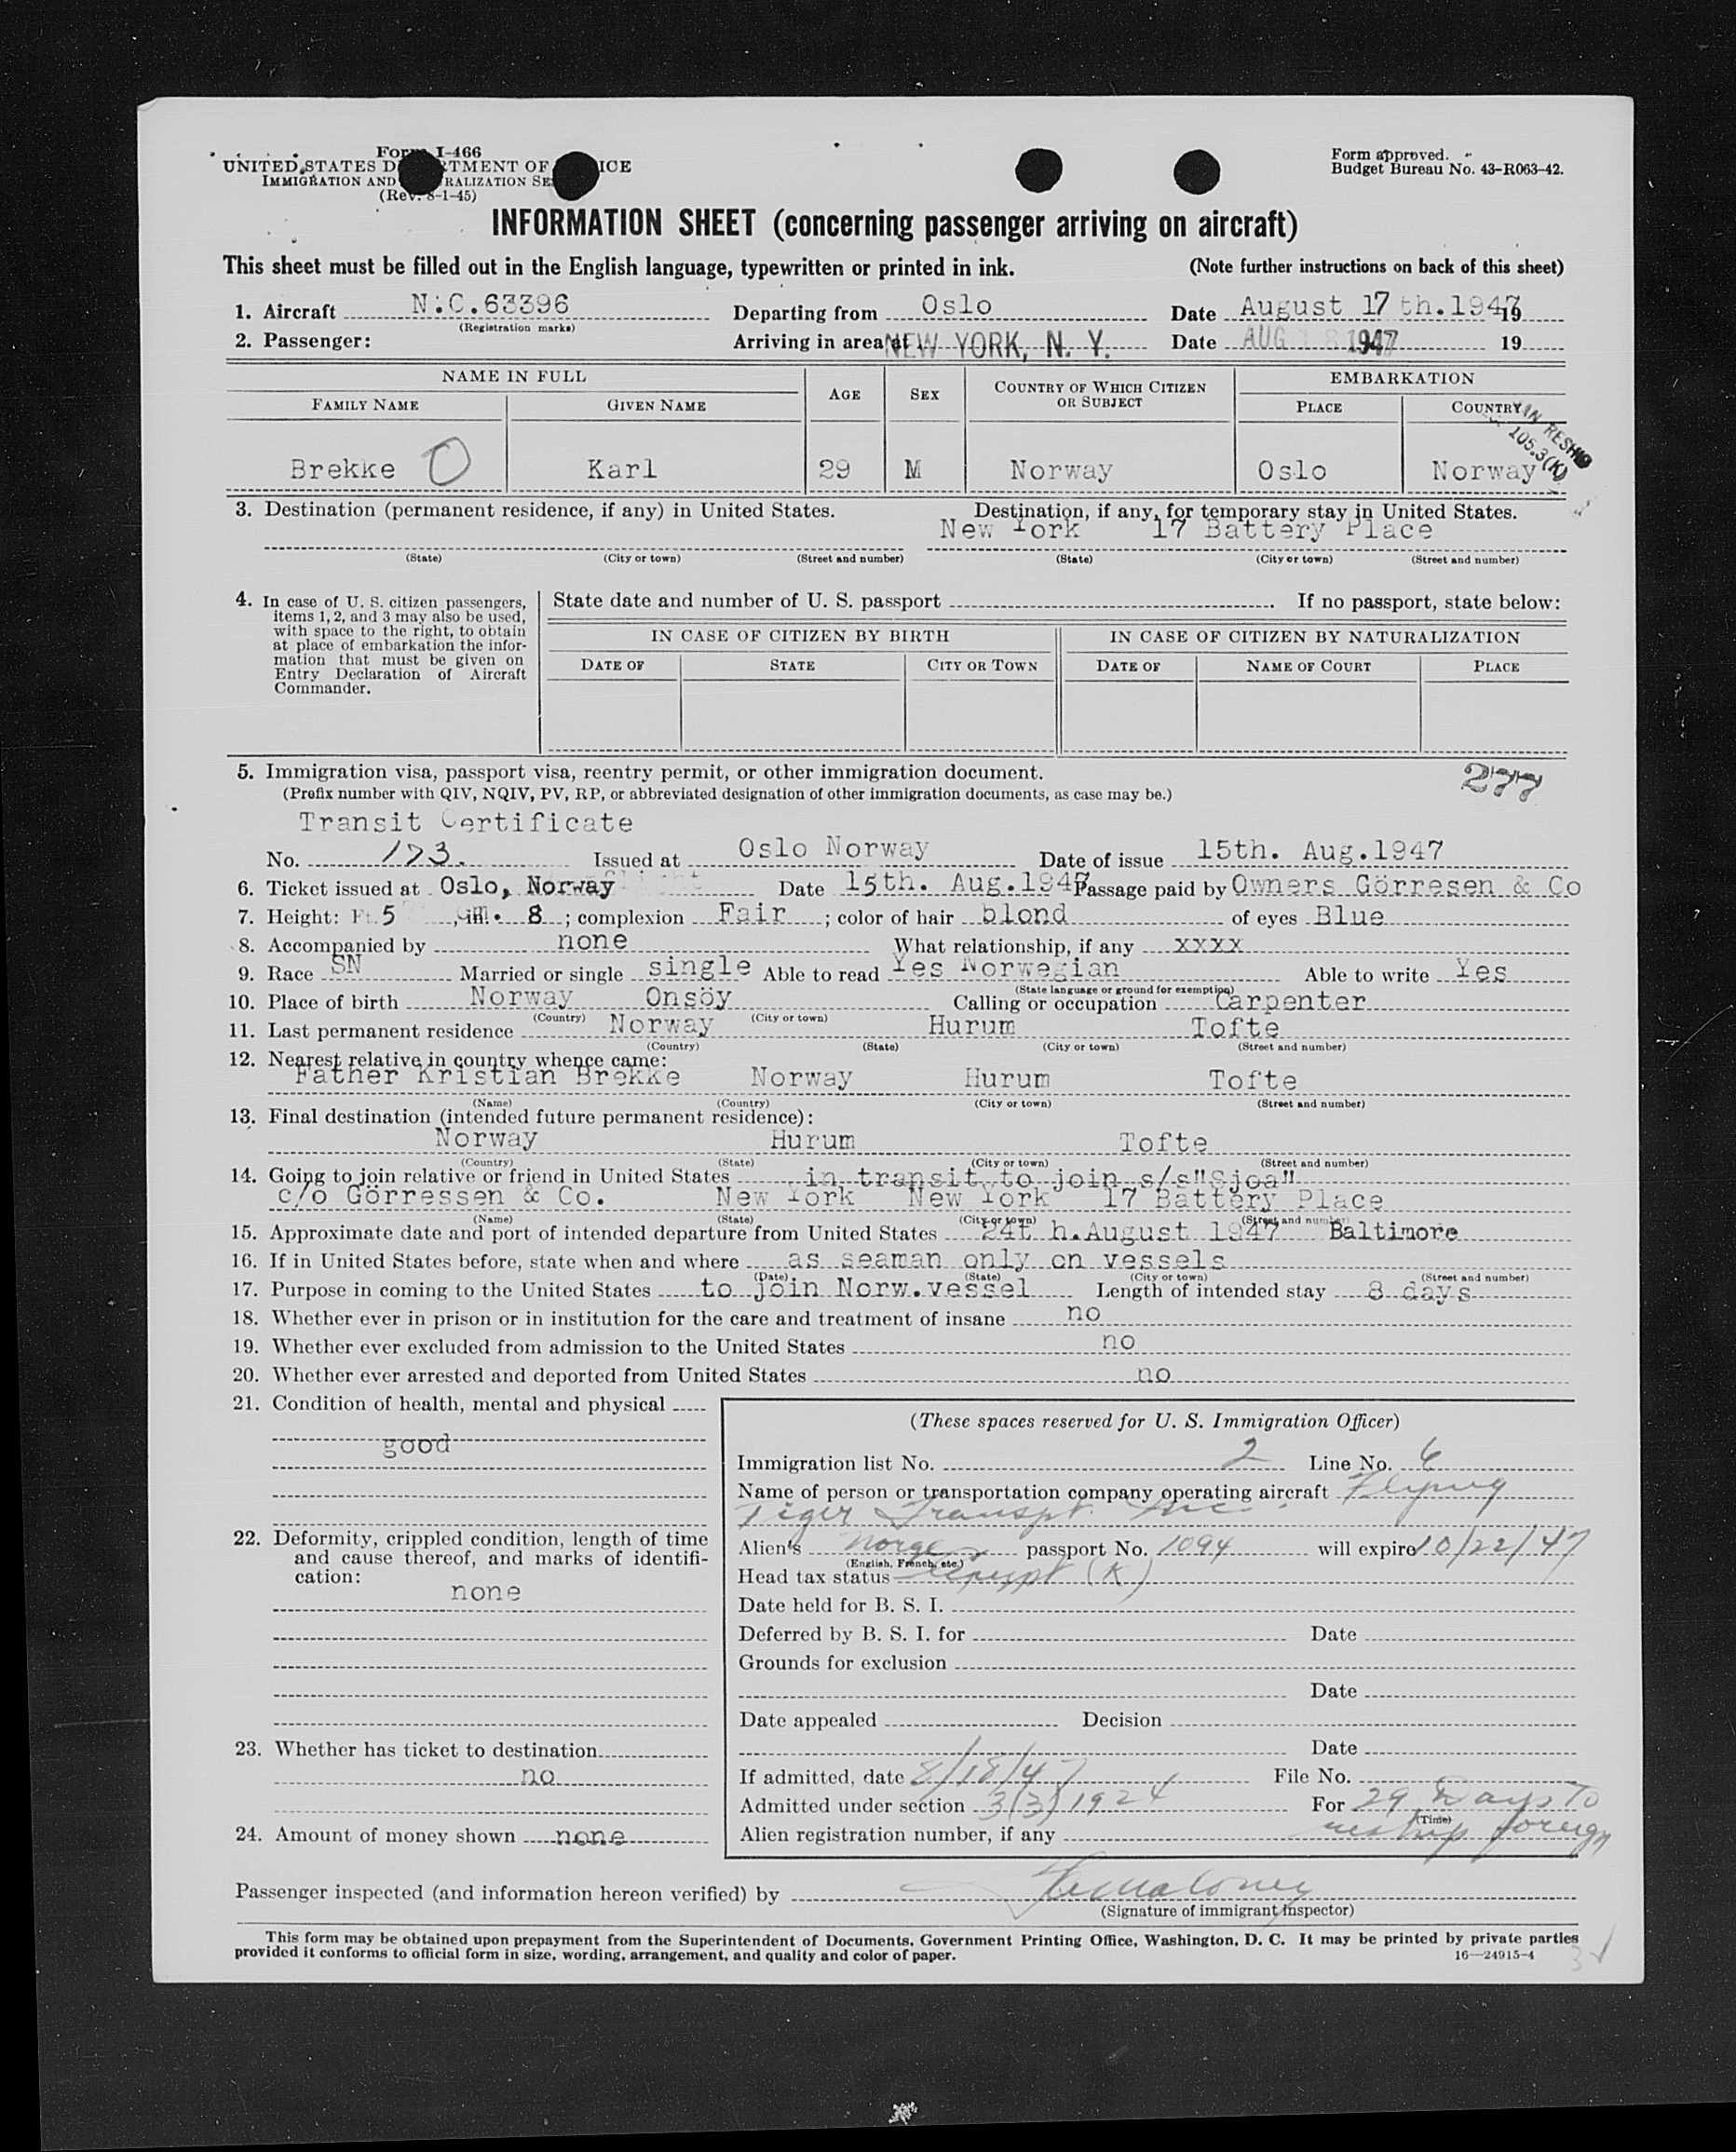 Form I-466
UNITED STATES D TMENT OF ICE
IMMIGRATION AND RALIZATION SE
(Rev. 8-1-45)
Form approved.
Budget Bureau No. 43-R063-42.
INFORMATION SHEET (concerning passenger arriving on aircraft)
This sheet must be filled out in the English language, typewritten or printed in ink. (Note further instructions on back of this sheet)
1. Aircraft N.C.63396 Departing from Oslo Date August 17 th.1947 19
(Registration marks)
2. Passenger: Arriving in area of NEW YORK, N. Y. Date AUG 18 1947 19
NAME IN FULL AGE SEX COUNTRY OF WHICH CITIZEN OR SUBJECT EMBARKATION
FAMILY NAME GIVEN NAME PLACE COUNTRY
IN RESHIP
105.3(K)
Brekke O Karl 29 M Norway Oslo Norway
3. Destination (permanent residence, if any) in United States. Destination, if any, for temporary stay in United States.
New York 17 Battery Place
(State) (City or town) (Street and number) (State) (City or town) (Street and number)
4. In case of U. S. citizen passengers, items 1, 2, and 3 may also be used, with space to the right, to obtain at place of embarkation the information that must be given on Entry Declaration of Aircraft Commander.
State date and number of U. S. passport . If no passport, state below:
IN CASE OF CITIZEN BY BIRTH IN CASE OF CITIZEN BY NATURALIZATION
DATE OF STATE CITY OR TOWN DATE OF NAME OF COURT PLACE
5. Immigration visa, passport visa, reentry permit, or other immigration document. 277
(Prefix number with QIV, NQIV, PV, RP, or abbreviated designation of other immigration documents, as case may be.)
Transit Certificate
No. 173. Issued at Oslo Norway Date of issue 15th. Aug.1947
6. Ticket issued at Oslo, Norway Date 15th. Aug.1947 Passage paid by Owners Görresen & Co
7. Height: Ft. 5 , in. 8 ; complexion Fair ; color of hair blond of eyes Blue
8. Accompanied by none What relationship, if any xxxx
9. Race SN Married or single single Able to read Yes Norwegian Able to write Yes
(State language or ground for exemption)
10. Place of birth Norway Onsöy Calling or occupation Carpenter
(Country) (City or town)
11. Last permanent residence Norway Hurum Tofte
(Country) (State) (City or town) (Street and number)
12. Nearest relative in country whence came:
Father Kristian Brekke Norway Hurum Tofte
(Name) (Country) (City or town) (Street and number)
13. Final destination (intended future permanent residence):
Norway Hurum Tofte
(Country) (State) (City or town) (Street and number)
14. Going to join relative or friend in United States in transit to join s/s"Sjoa"
c/o Görressen & Co. New York New York 17 Battery Place
(Name) (State) (City or town) (Street and number)
15. Approximate date and port of intended departure from United States 24t h.August 1947 Baltimore
16. If in United States before, state when and where as seaman only on vessels
(Date) (State) (City or town) (Street and number)
17. Purpose in coming to the United States to join Norw.vessel Length of intended stay 8 days
18. Whether ever in prison or in institution for the care and treatment of insane no
19. Whether ever excluded from admission to the United States no
20. Whether ever arrested and deported from United States no
21. Condition of health, mental and physical
good
22. Deformity, crippled condition, length of time and cause thereof, and marks of identification:
none
23. Whether has ticket to destination
no
24. Amount of money shown none
(These spaces reserved for U. S. Immigration Officer)
Immigration list No. 2 Line No. 6
Name of person or transportation company operating aircraft Flying
Tiger Transpt. Inc.
Alien's Norge passport No. 1094 will expire 10/22/47
(English, French, etc.)
Head tax status Exempt (K)
Date held for B. S. I.
Deferred by B. S. I. for Date
Grounds for exclusion
Date
Date appealed Decision
Date
If admitted, date 8/18/47 File No.
Admitted under section 3(3) 1924 For 29 Days To
(Time)
Alien registration number, if any reship foreign
Passenger inspected (and information hereon verified) by
(Signature of immigrant inspector)
This form may be obtained upon prepayment from the Superintendent of Documents, Government Printing Office, Washington, D. C. It may be printed by private parties
provided it conforms to official form in size, wording, arrangement, and quality and color of paper. 16—24915-4